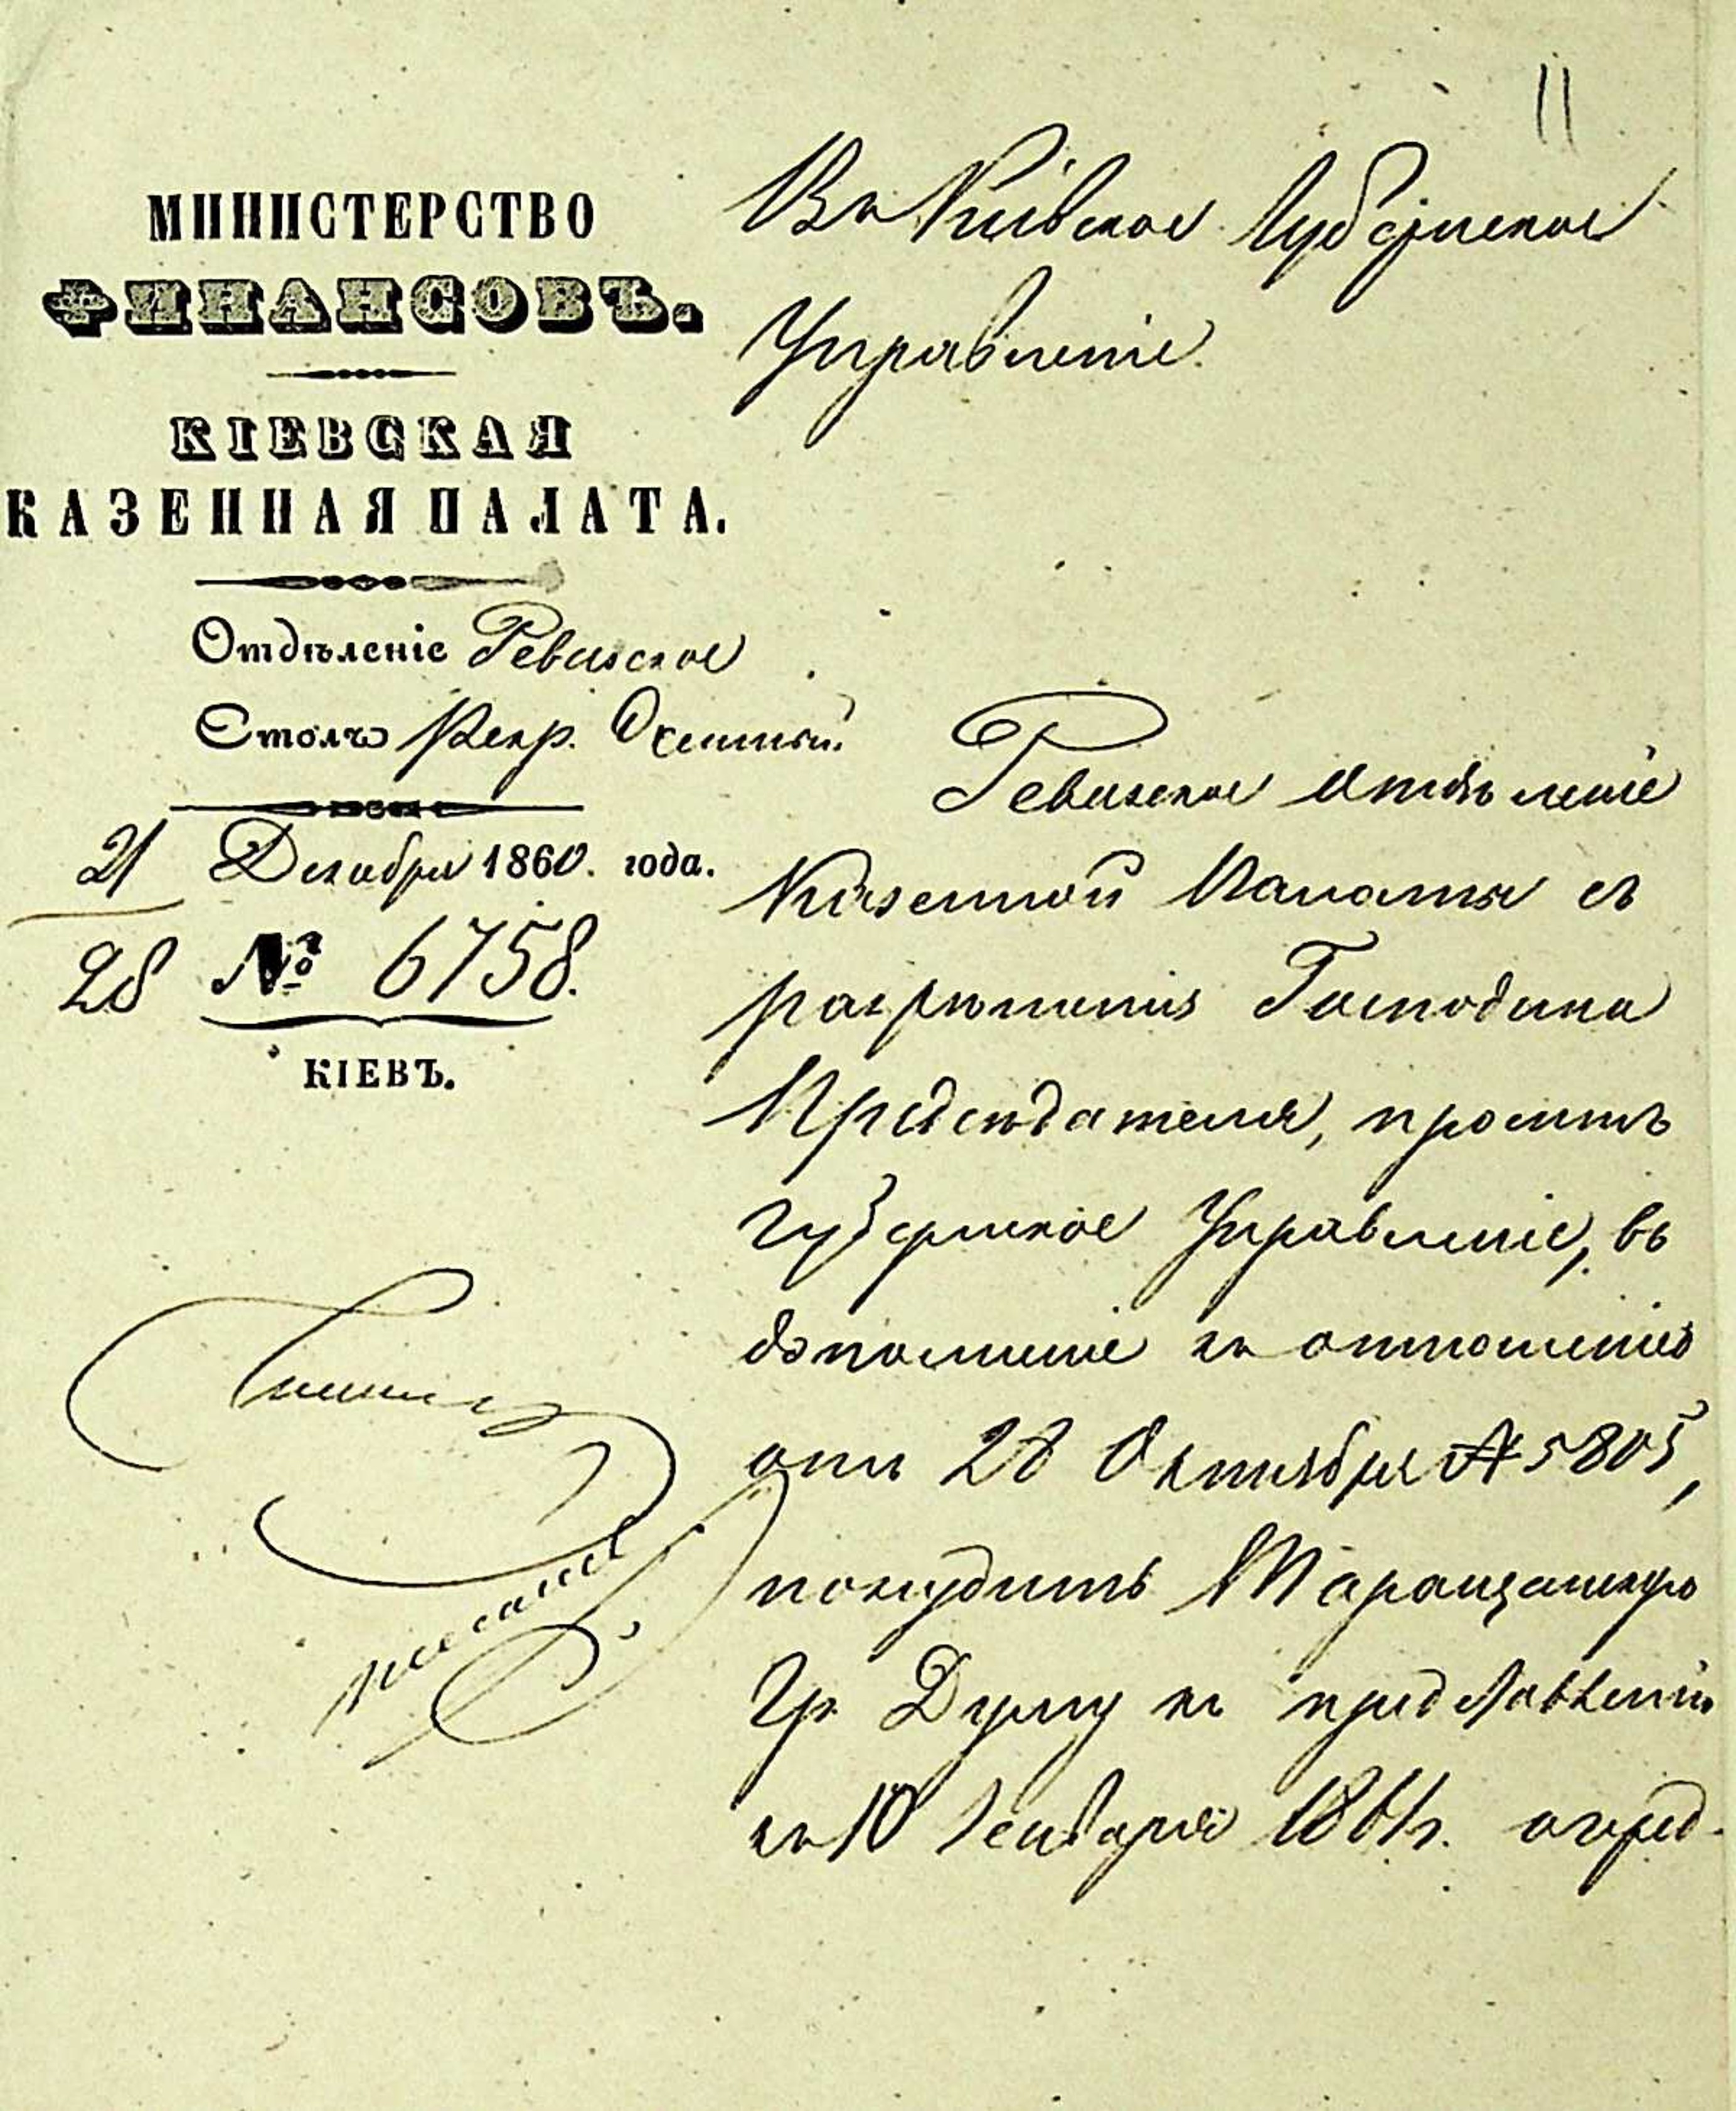 11
МИНИСТЕРСТВО
ФИНАНСОВЪ.
КІЕВСКАЯ
КАЗЕННАЯ ПАЛАТА.
Отдѣленіе Ревизское
Столъ Рекр.
21 Декабря 1860. года.
28 № 6758.
КІЕВЪ.
Въ Кіевское Губернское
Управленіе.
Ревизское отдѣленіе
Казенной Палаты съ
разрѣшенія Господина
Предсѣдателя, проситъ
Губернское Управленіе, въ
дополненіе къ отношенію
отъ 28 Октября № 5805,
понудить Таращанскую
Гр. Думу къ представленію
къ 10 Генваря 1861 г. очеред-